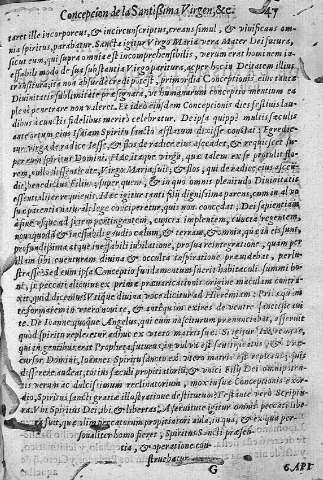 Concepcion de la Santissima Virgen, &c. 47
taret ille incorporeus, & incircunscriptus, creans simul, & vivificans om
nia spiritus, parabatur. Sancta igitur Virgo Maria vera Mater Dei futura,
sicut eum, qui supra omnia est incomprehensibilis, verum erat hominem in
effabili modo de sua substantia Virgo paritura, ac per hoc in Deitatem illius
transitura, ita non absurde credi potest, primordia Conceptionis eius tanta
Divinitatis sublimitate praesignata, ut humanarum conceptio mentium ea
plene penetrare non valeret. Et ideo eiusdem Conceptionis dies festivis lau
dibus a cunctis fidelibus merito celebratur. De ipsa quippe multis saeculis
ante ortum eius Isaiam Spiritu Sancto afflatum dixisse constat: Egredie
tur Virga de radice Iesse, & flos de radice eius ascendet, & requiescet su
per eum spiritus Domini. Haec itaque virga, quae talem ex se protulit flo
rem, nullo dissentiente, Virgo Maria fuit, & flos, qui de radice eius ascen
dit, benedictus Filius;
essentialiter requievit. Haec igitur tanti filij dignissima parens, cum in alvo
suae parentis naturali lege conciperetur, quis non concedat, Dei sapientiam
a fine usque ad finem pertingentem, cuncta implentem, cuncta regentem,
novo quodam & ineffabili gaudio caelum, & terram, & omnia, quae in eis sunt,
profundissima atque ineffabili iubilatione, pro sua reintegratione, quam per
illam sibi eventuram divina & occulta inspiratione praevidebat, perlu
strasse? Sed cum ipsa Conceptio fundamentum fuerit habitaculi summi bo
ni, si peccati alicuius ex primae praevaricationis origine maculam contra
xit, quid dicemus? Utique divina voce dicitur ad Hieremiam: Priusquam
te formarem in utero novi te, & antequam exires de ventre sanctificavi
te. De Ioanne quoque Angelus, qui eum nasciturum praenunciabat, asseruit
quod spiritu repleretur adhuc ex utero matris suae. Si igitur Hieremias,
qui in gentibus erat Propheta futurus, in vulva est sanctificatus, & Io
Dominum, Ioannes Spiritu sancto ex utero matris est repletus, quis
dicere audeat, totius saeculi propitiatorij, & unici Filij Dei omnipoten
tis verum ac dulcissimum reclinatorium, mox in suae Conceptionis exor
dio, Spiritus sancti gratiae illustratione destitutum? Testante vero Scriptu
ra. Ubi Spiritus Dei, ibi & libertas. A servitute igitur omnis peccati libe
ra fuit, quae omnium peccatorum propitiatori aula, in qua, & ex qua per
sonaliter homo fieret, Spiritus Sancti praesen
tia, & operatione con
struebatur.
G CAPI